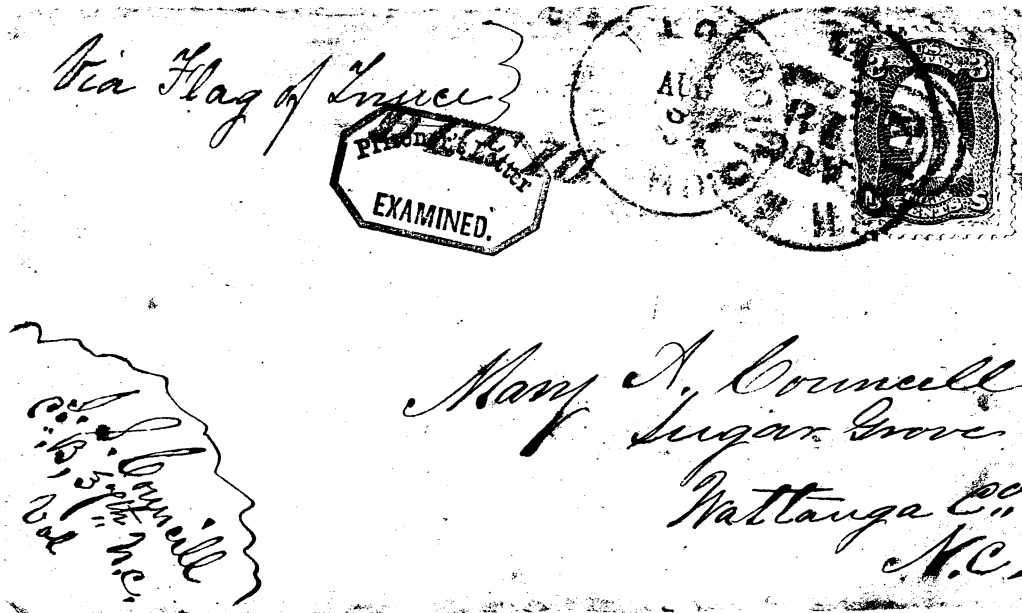 Via Flag of Truce
DUE 10
Prisoner's Letter
EXAMINED.
AUG
Mary A. Councill
Sugar Grove
Wattauga Co.
N.C.
J. S. Councill
Co. B, 37th N.C.
Vol